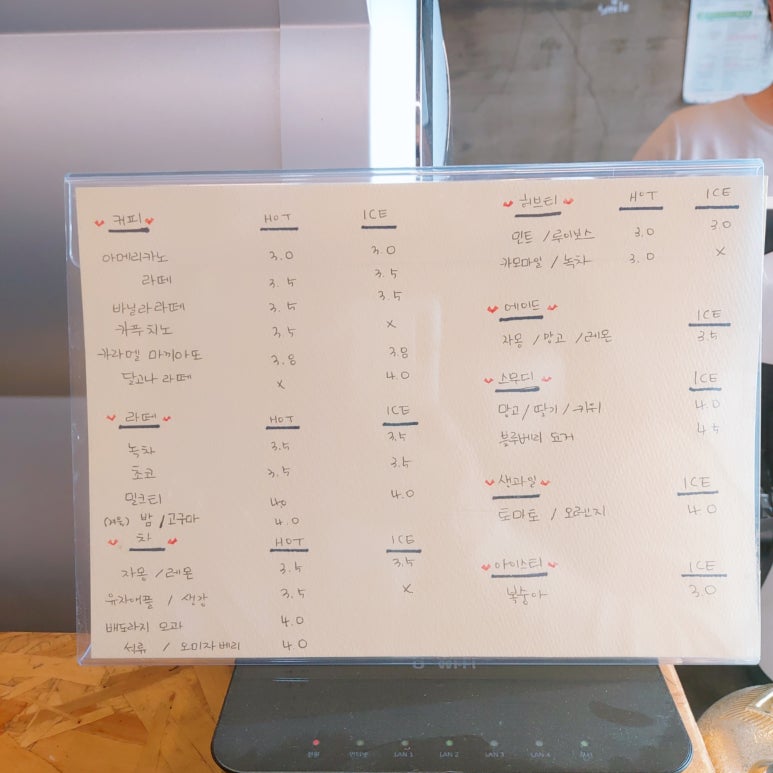 smile
커피 HOT ICE
아메리카노 3.0 3.0
라떼 3.5 3.5
바닐라라떼 3.5 3.5
카푸치노 3.5 x
카라멜 마끼아또 3.8 3.8
달고나 라떼 x 4.0
라떼 HOT ICE
녹차 3.5 3.5
초코 3.5 3.5
밀크티 4.0 4.0
(겨울) 밤 / 고구마 4.0
차 HOT ICE
자몽 / 레몬 3.5 3.5
유자애플 / 생강 3.5 x
배도라지 모과 4.0
석류 / 오미자베리 4.0
허브티 HOT ICE
민트 / 루이보스 3.0 3.0
카모마일 / 녹차 3.0 x
에이드 ICE
자몽 / 망고 / 레몬 3.5
스무디 ICE
망고 / 딸기 / 키위 4.0
블루베리 요거 4.5
생과일 ICE
토마토 / 오렌지 4.0
아이스티 ICE
복숭아 3.0
전원 인터넷 LAN 1 LAN 2 LAN 3 LAN 4